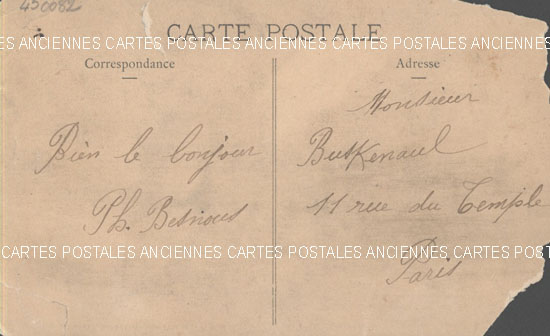 450082
CARTE POSTALE
ES ANCIENNES CARTES POSTALES ANCIENNES CARTES POSTALES ANCIENNES
Correspondance
Adresse
Bien le bonjour
Ph. Besnous
Monsieur
Buskenael
11 rue du Temple
Paris
CARTES POSTALES ANCIENNES CARTES POSTALES ANCIENNES CARTES POSTALES